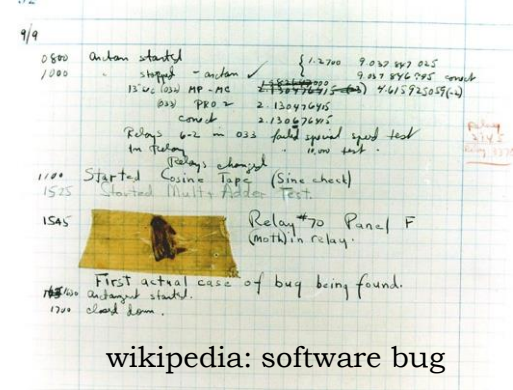 9/9
0800 Antan started
1000 " stopped - antan ✓ { 1.2700 9.037 847 025
9.037 846 995 correct
13"uc (032) MP - MC 2.130476415 4.615925059(-2)
(033) PRO 2 2.130476415
correct 2.130676415
Relays 6-2 in 033 failed special speed test
in relay " 10.000 test .
Relays changed
1100 Started Cosine Tape (Sine check)
1525 Started Mult + Adder Test.
1545 Relay #70 Panel F
(moth) in relay.
First actual case of bug being found.
1630 antangent started.
1700 closed down.
wikipedia: software bug